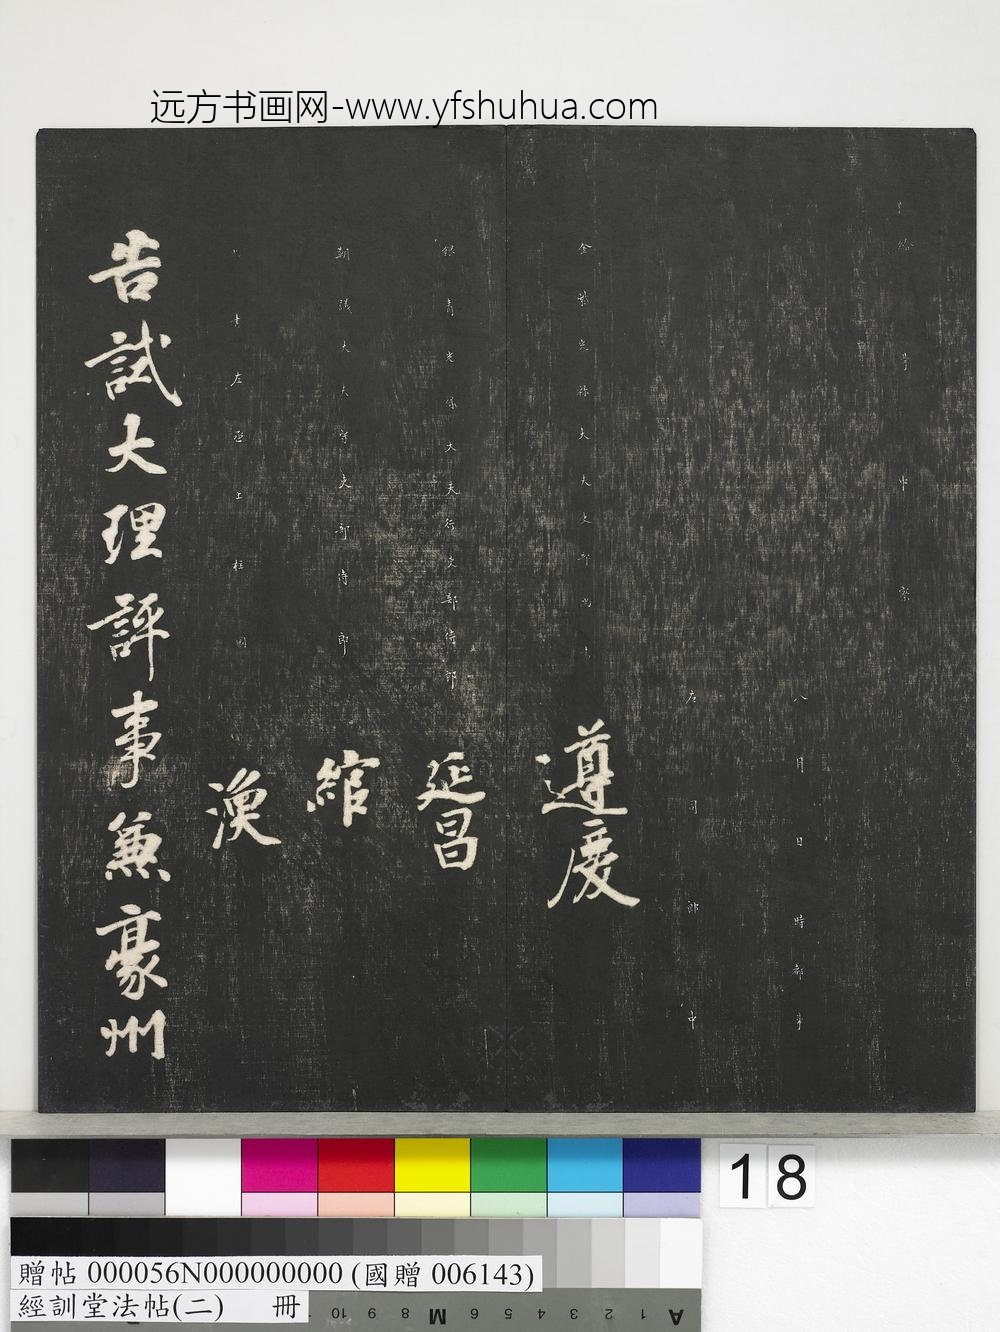 远方书画网-www.yfshuhua.com
給事中察
八月日時都事
左司郎中
金紫光祿大夫吏部尚書
遵慶
銀青光祿大夫行吏部侍郎
延昌
朝議大夫守吏部侍郎
綰
書左丞上柱國
渙
告試大理評事兼豪州
18
贈帖 000056N000000000 (國贈 006143)
經訓堂法帖(二) 冊
10 9 8 M 6 5 4 3 2 1 A